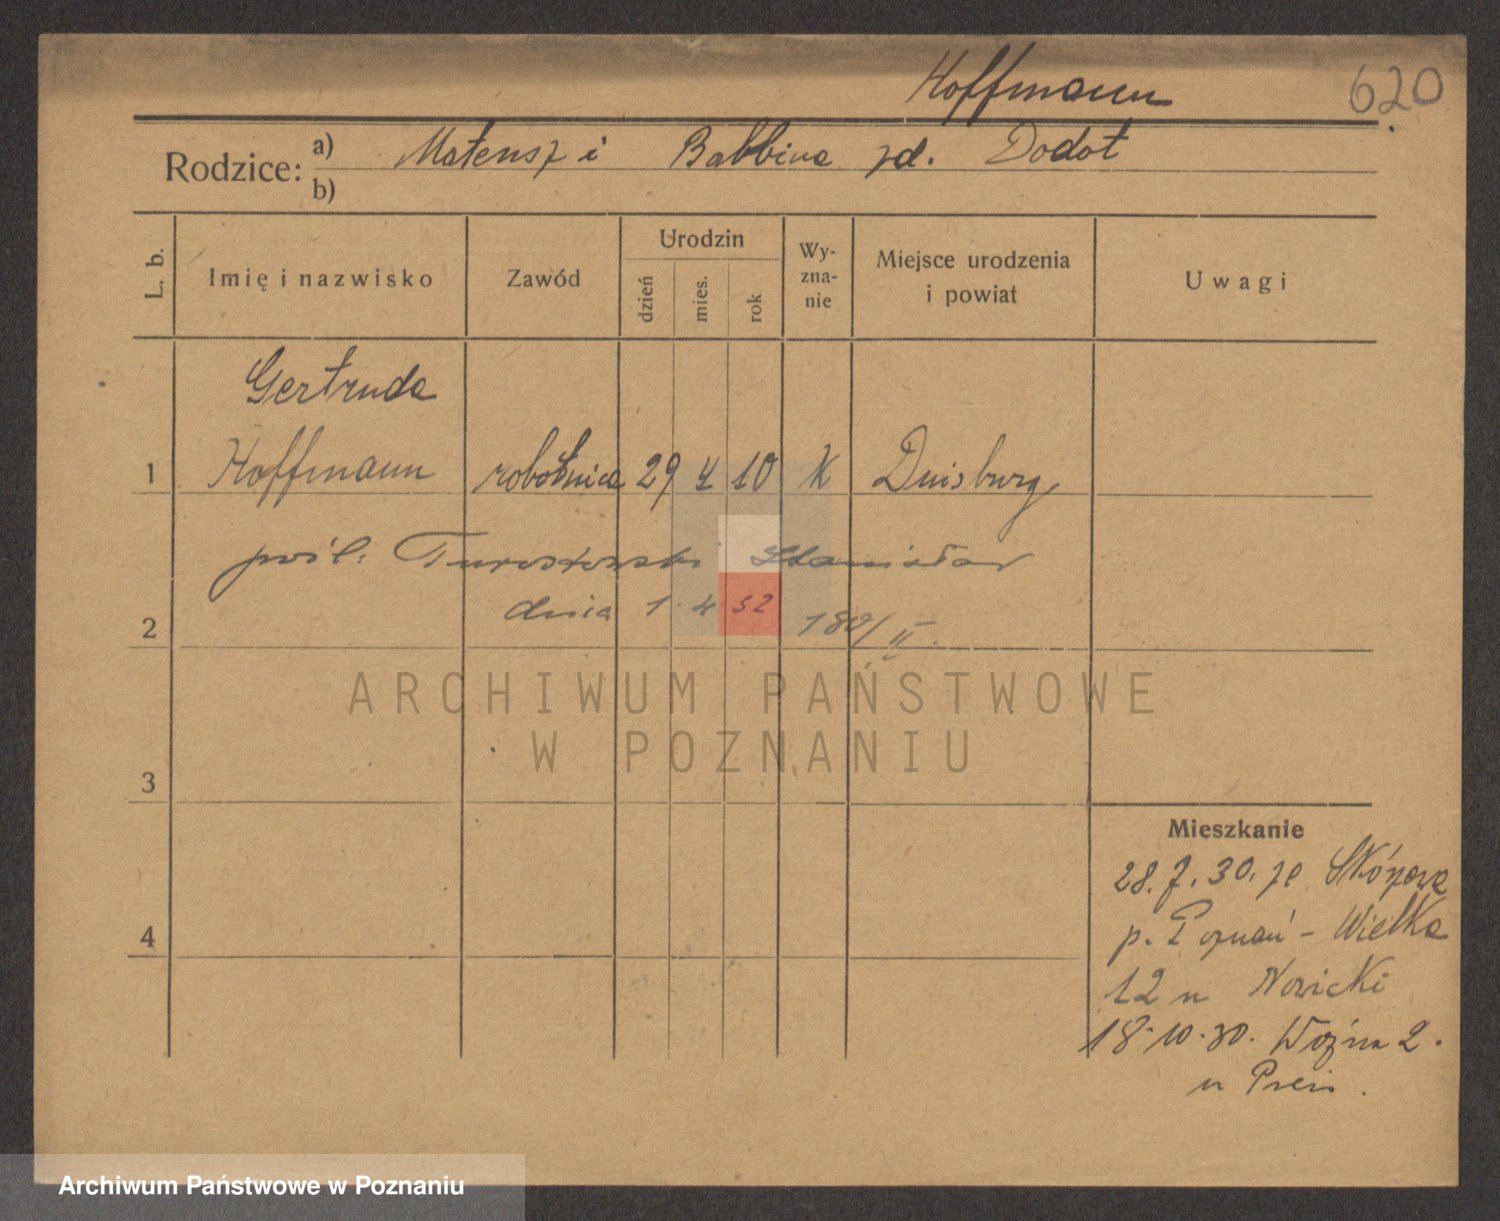 Hoffmann
620
Rodzice: a) Mateusz i Babbina zd. Dodot
b)
L. b.
Imię i nazwisko
Zawód
Urodzin
dzień
mies.
rok
Wy-
zna-
nie
Miejsce urodzenia
i powiat
Uwagi
Gertruda
1 Hoffmann robotnica 29 4 10 K Duisburg
Stanisław
dnia 1. 4. 32 180/II.
2
ARCHIWUM PAŃSTWOWE
W POZNANIU
3
Mieszkanie
28. 7. 30. ze Skórzewa
p. Poznań - Wielka
4
12 u Nowicki
18.10.30. Woźna 2.
u
Archiwum Państwowe w Poznaniu